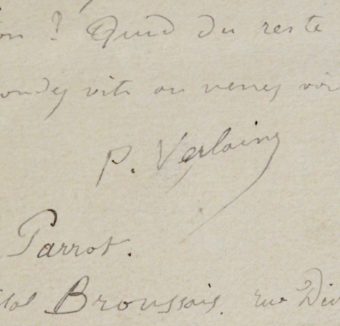 on ? Quid du reste
ondez vite ou venez voir
P. Verlaine
Parrot.
ital Broussais, rue Did